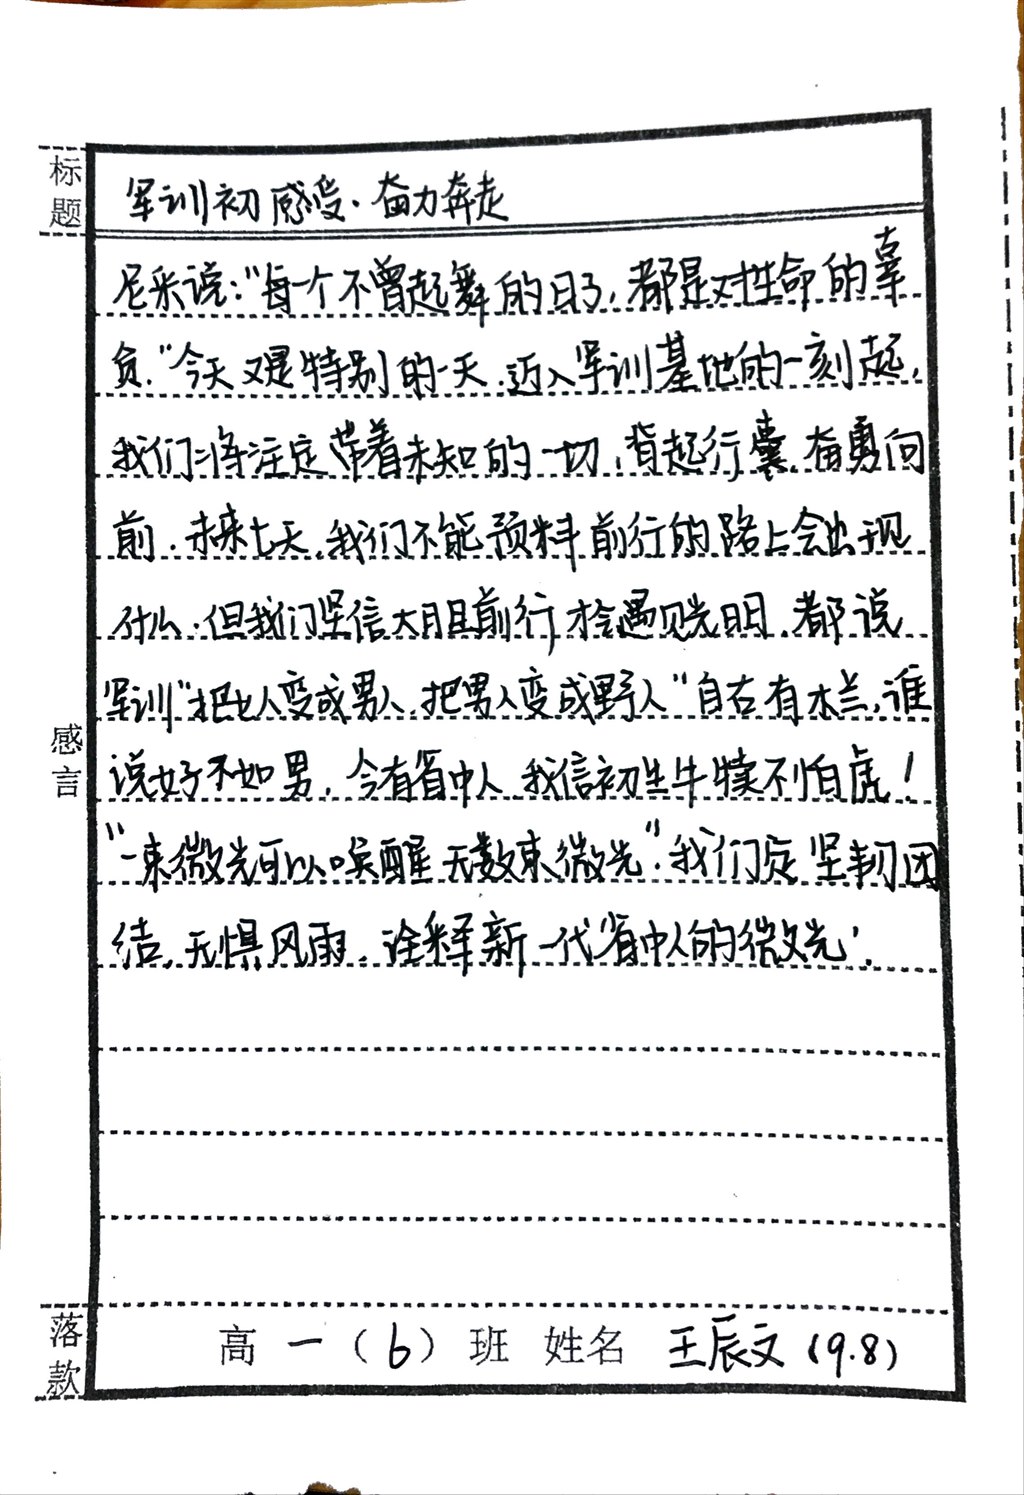 标题
军训初感受·奋力奔走
尼采说:"每个不曾起舞的日子,都是对生命的辜
负."今天又是特别的一天.迈入军训基地的一刻起,
我们将注定带着未知的一切,背起行囊.奋勇向
前.未来七天,我们不能预料前行的路上会出现
什么.但我们坚信大胆前行,才会遇见光明.都说
军训"把女人变成男人.把男人变成野人"自古有木兰,谁
说女子不如男,今有省中人 我信初生牛犊不怕虎!
"一束微光可以唤醒无数束微光".我们定坚韧团
结,无惧风雨.诠释新一代省中人的微光!
感言
落款
高一(6)班 姓名 王辰文(9.8)